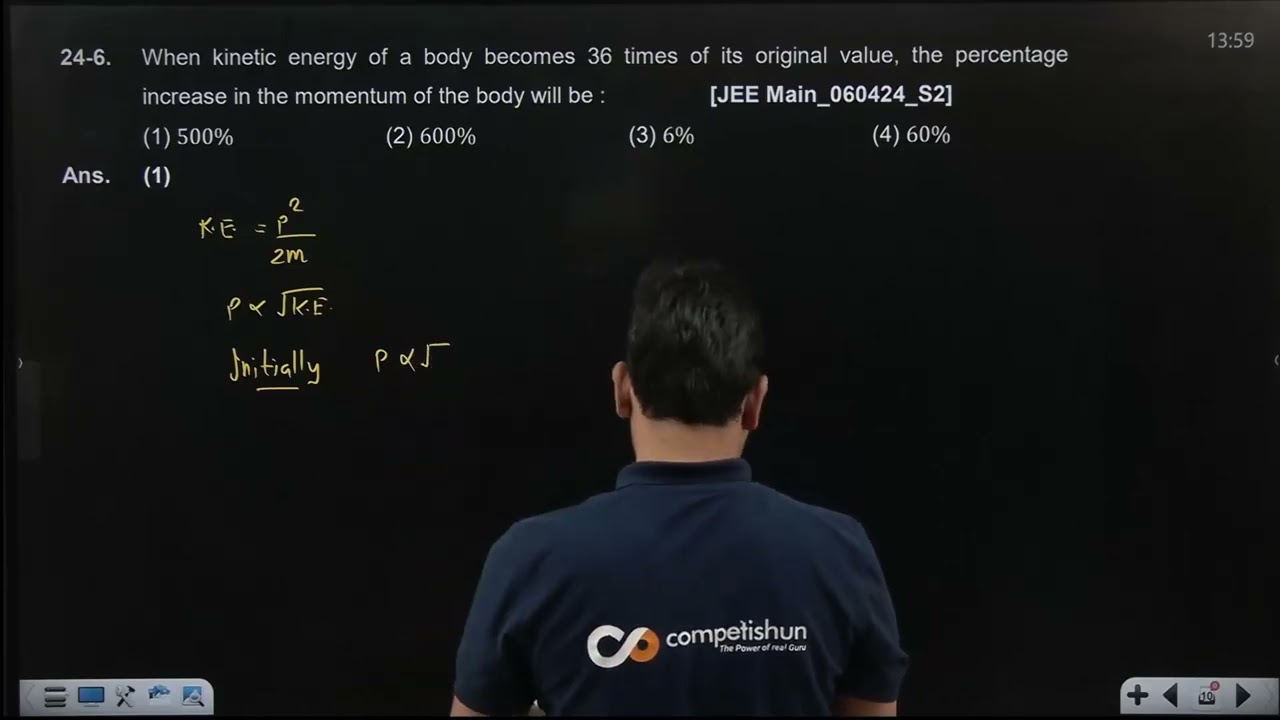 13:59
24-6. When kinetic energy of a body becomes 36 times of its original value, the percentage
increase in the momentum of the body will be : [JEE Main_060424_S2]
(1) 500% (2) 600% (3) 6% (4) 60%
Ans. (1)
K.E = P²
2m
P ∝ √K.E.
Initially P ∝ √
competishun
The Power of real Guru
10